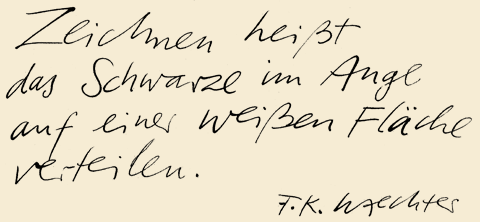 Zeichnen heißt
das Schwarze im Auge
auf einer weißen Fläche
verteilen.
F.K. Waechter